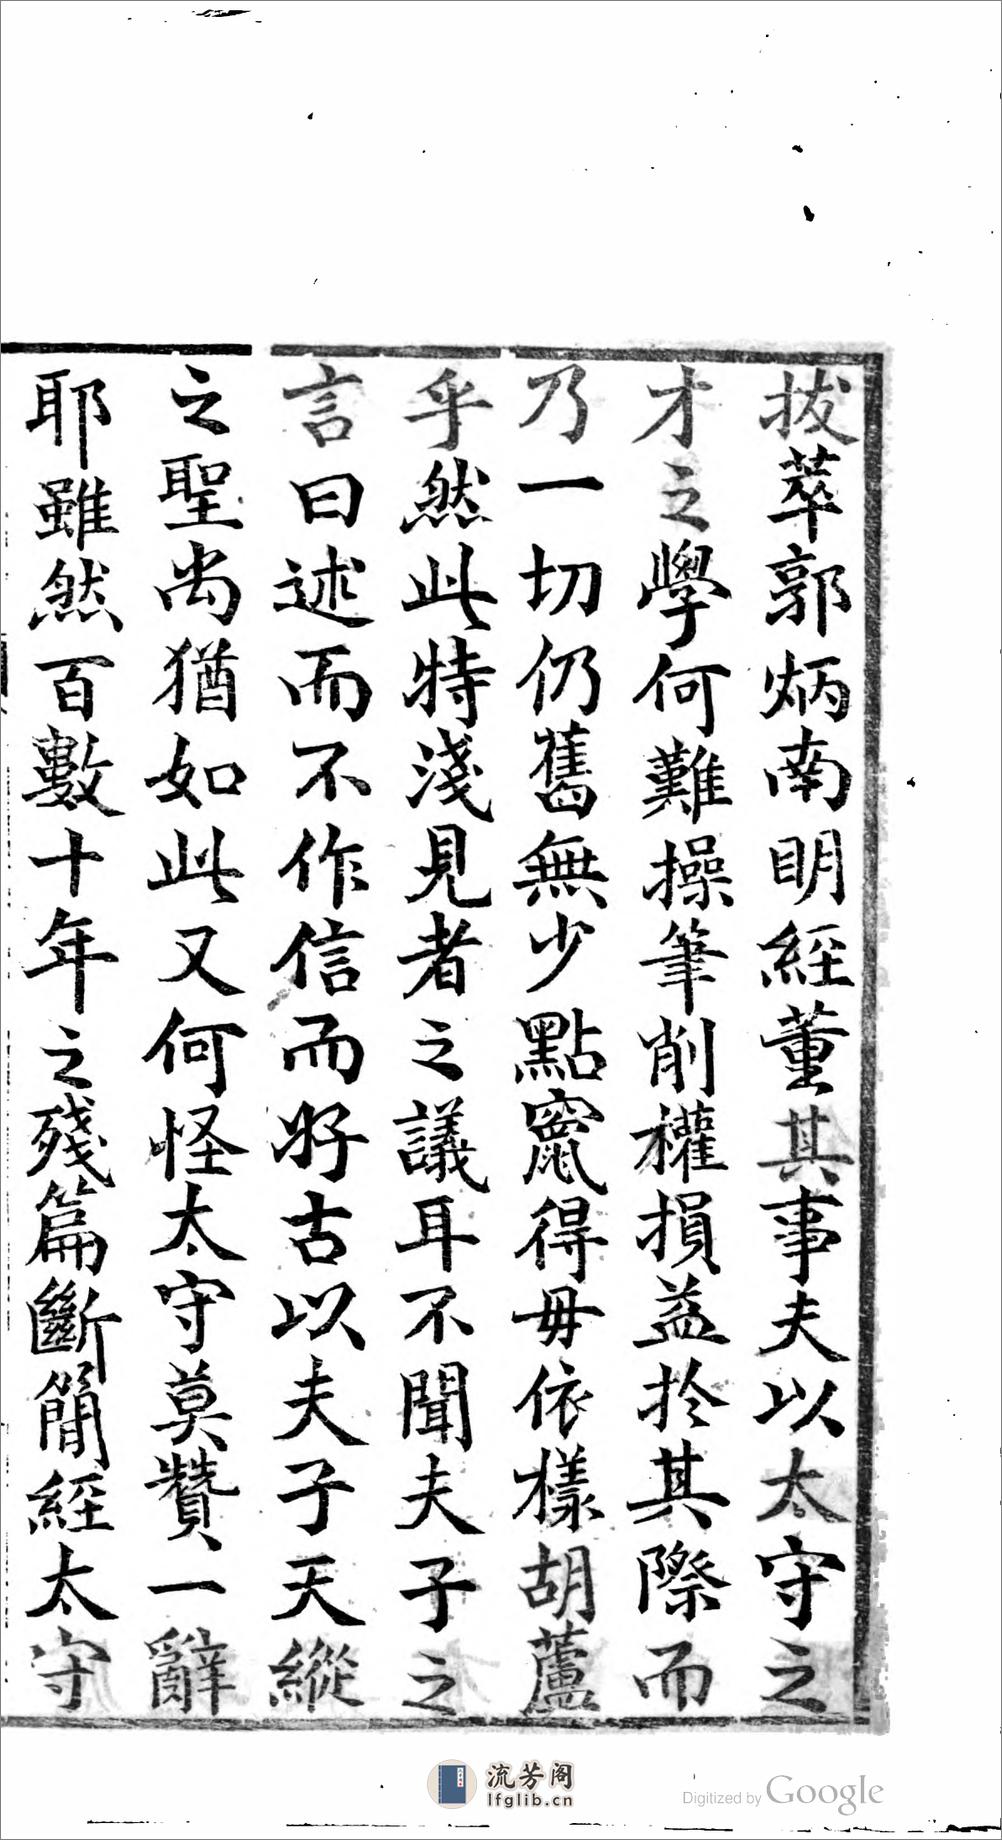 拔萃郭炳南明經董其事夫以太守之
才之學何難操筆削權損益於其際而
乃一切仍舊無少點竄得毋依樣胡蘆
乎然此特淺見者之議耳不聞夫子之
言曰述而不作信而好古以夫子天縱
之聖尚猶如此又何怪太守莫贊一辭
耶雖然百數十年之殘篇斷簡經太守
流芳阁
lfglib.cn
Digitized by Google